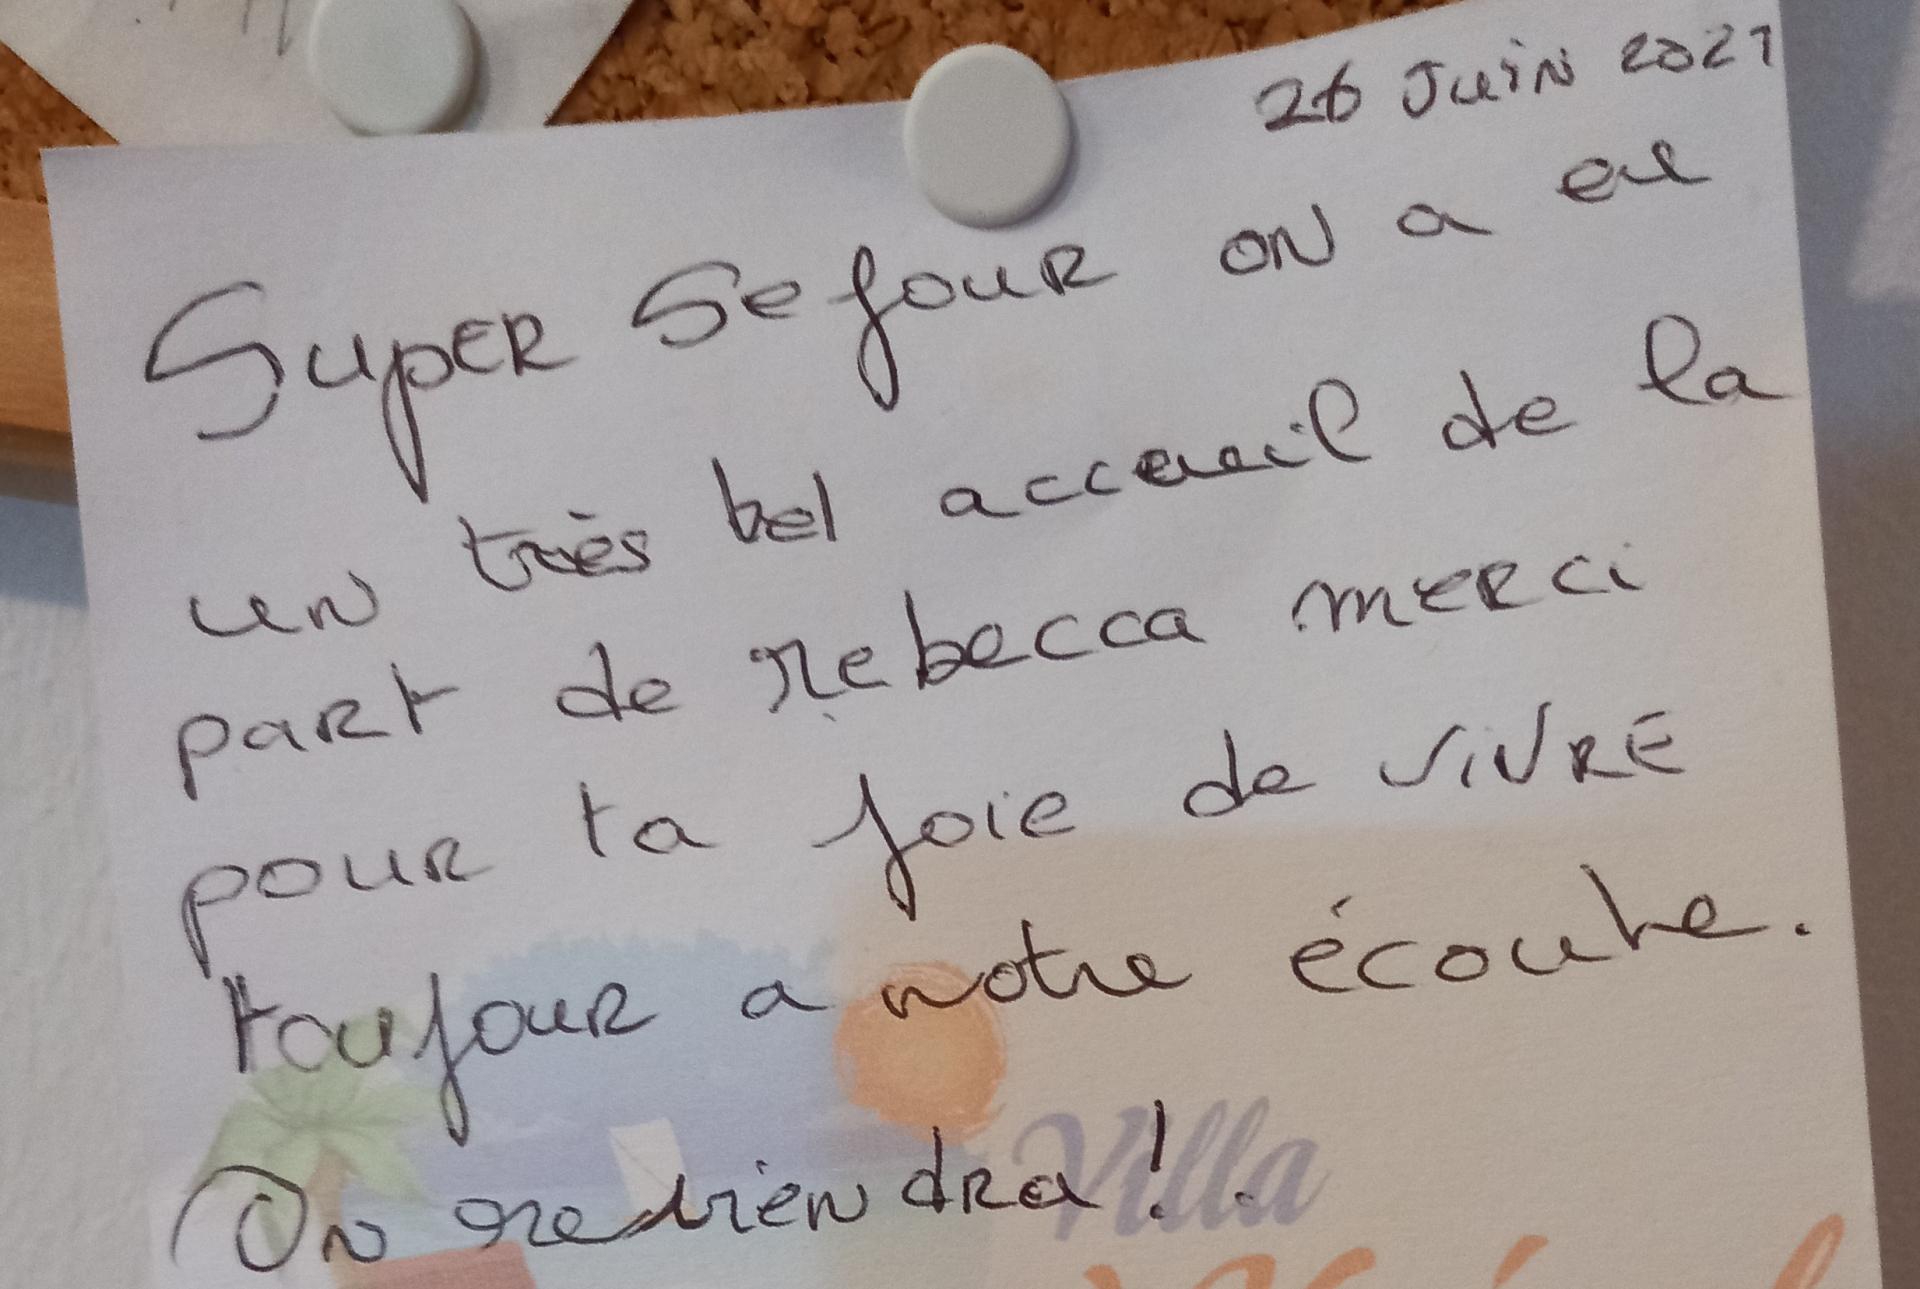 26 Juin 2021
Super Sejour on a eu
un très bel accueil de la
part de rebecca merci
pour ta joie de vivre
toujour a notre écoute.
On reviendra!
Villa